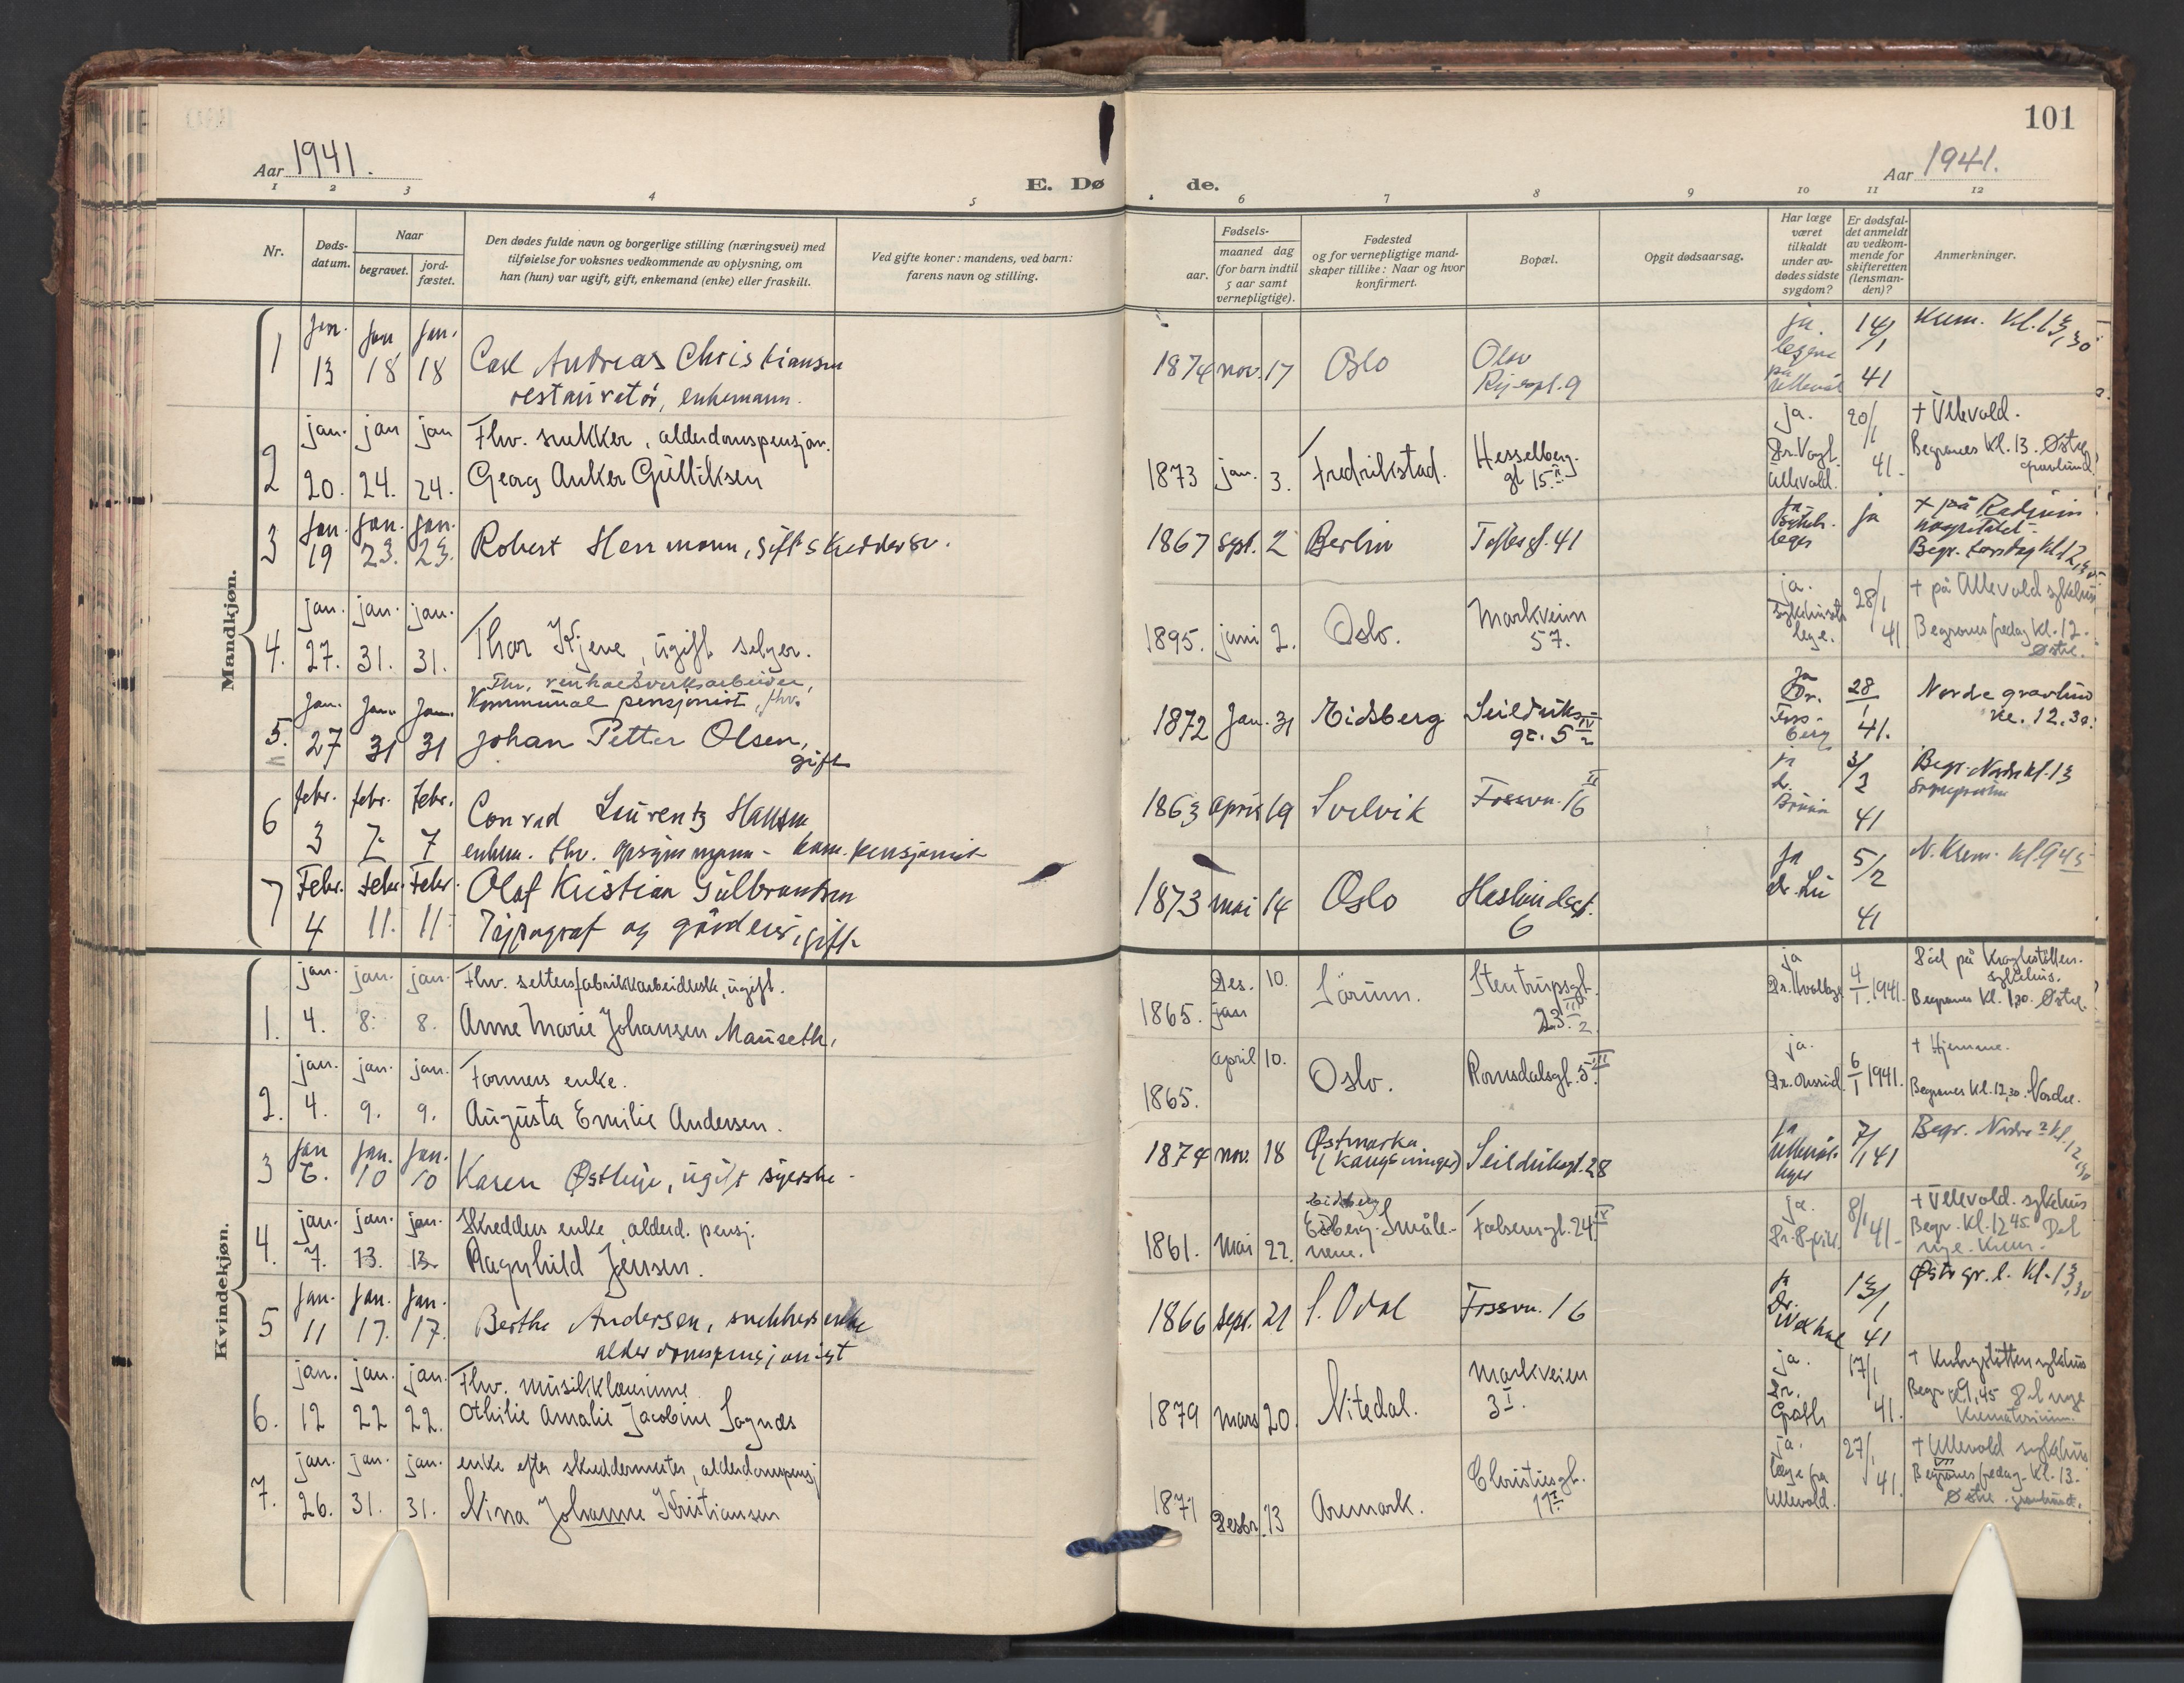 101
Aar 1941.
E. Dø
de.
Aar 1941.
1 2 3 4 5
6 7 8 9 10 11 12
Nr.
Døds-
datum.
Naar
begravet.
jord-
fæstet.
Den dødes fulde navn og borgerlige stilling (næringsvei) med
tilføielse for voksnes vedkommende av oplysning, om
han (hun) var ugift, gift, enkemand (enke) eller fraskilt.
Ved gifte koner: mandens, ved barn:
farens navn og stilling.
Fødsels-
aar.
maaned dag
(for barn indtil
5 aar samt
vernepligtige).
Fødested
og for vernepligtige mand-
skaper tillike: Naar og hvor
konfirmert.
Bopæl.
Opgit dødsaarsag.
Har læge
været
tilkaldt
under av-
dødes sidste
sygdom?
Er dødsfal-
det anmeldt
av vedkom-
mende for
skifteretten
(lensman-
den)?
Anmerkninger.
Mandkjøn.
1 Jan. 13 Jan 18 Jan. 18 Carl Andreas Christiansen
restauratør, enkemann.
1874 nov. 17 Oslo
Olav
Ryespl. 9
ja.
legene
på
Ullevål
14/1 41
Krem. kl. 13,30
2 jan. 20. jan 24. jan 24. Fhv. snekker, alderdomspensjon.
Georg Anker Gulliksen
1873 jan. 3. Fredrikstad.
Hesselberg-
gt 15 II
ja.
Dr. Vogt
Ullevold.
20/1 41.
+ Ullevold.
Begraves kl. 13. Østre
gravlund
3 Jan. 19 Jan. 23. Jan. 23. Robert Herrmann, gift skredder
1867 sept. 2 Berlin Toftesgt. 41
ja
leger
ja
+ på Radium
hospitalet.
Begr. torsdag kl. 12,30
4. jan. 27. jan. 31. jan. 31. Thor Kjene, ugift selger.
1895. juni 2. Oslo.
Markveien
57.
ja.
sykehusets
lege.
28/1 41
+ på Ullevold sykehus
Begraves fredag kl. 12.
Østre.
5. Jan. 27 Jan. 31 Jan. 31 Fhv. renholdsverksarbeider,
Kommunal pensjonist, fhv.
Johan Petter Olsen,
gift
1872 Jan. 31 Eidsberg
Seilduks-
gt. 5 IV/2
Ja
Dr.
Foss-
berg
28/1 41.
Nordre gravlund
kl. 12.30.
6 febr. 3 febr. 7 febr. 7 Conrad Laurentz Hansen
enkem. fhv. opsynsmann - kom. pensjonist
1863 april 19 Svelvik Fossvn. 16 II
ja
dr.
3/2 41
Begr. Nordre kl. 13
7 Febr. 4 Febr. 11. Febr. 11. Olaf Kristian Gulbrandsen
Typograf og gårdeier, gift
1873 mai 14 Oslo
Haslundsgt.
6
Ja
dr. Lie
5/2 41
N. Krem. kl. 9 45
Kvindekjøn.
1. jan. 4. jan. 8. jan. 8. Fhv. seltersfabrikkarbeiderske, ugift.
Anne Marie Johansen Mauseth.
1865. Des. jan 10. Sørum.
Stentrupsgt.
23 III/2
ja
4/1. 1941.
Død på Krogstøtten.
sykehus.
Begraves kl. 1,30. Østre.
2. jan. 4. jan. 9. jan. 9. Formers enke.
Augusta Emilie Andersen.
1865. april 10. Oslo. Romsdalsgt. 5 III
ja.
Dr. Onsrud.
6/1 1941.
+ Hjemme.
Begraves kl. 12,30. Nordre.
3 Jan 6. Jan. 10 Jan. 10 Karen Østlie, ugift syerske.
1874 nov. 18 Østmarka
(Kongsvinger) Seilduksgt. 28
ja
Ullevåls
leger
7/1 41
Begr. Nordre kl. 12,30
4. jan. 7. jan. 13. jan. 13. Skredders enke alderd. pensj.
Ragnhild Jensen.
1861. Mai 22. Eidsberg
Eidberg. Småle-
nene. Falsensgt. 24 IV
ja.
8/1 41.
+ Ullevold. sykehus
Begr. Kl. 12 45. Det
nye. Krem.
5 Jan. 11 Jan. 17. Jan. 17. Berthe Andersen, snekkers enke
alderdomspensjonist
1866 sept. 21 S. Odal Fossvn. 16
ja
Dr.
13/1 41
Østr. gr. l. kl. 13,30
6. jan. 12 jan. 22 jan. 22. Fhv. musikklærerinne
Othilie Amalie Jacobine Sognæs
1879 mars 20. Nitedal.
Markveien
3 I.
ja.
Dr.
Groth
17/1 41.
+ Krohgstøtten sykehus
Begr. kl. 9,45 Det nye
Krematorium.
7. jan. 26. jan. 31. jan. 31. enke efter skreddermester, alderdomspensj
Nina Johanne Kristiansen
1871 Desbr. 13 Aremark.
Christiesgt.
11 I.
ja.
lege fra
Ullevold.
27/1 41.
+ Ullevold sykehus
Begraves fredag kl. 13.
Østre gravlund.